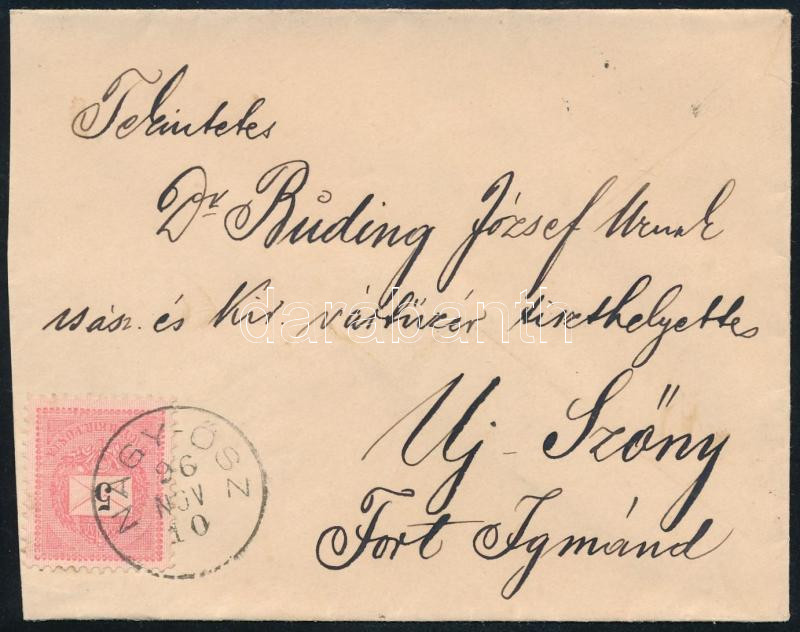 Tekintetes
Dr Büding József Urnak
csász. és kir. vártüzér tiszthelyettes
Uj-Szőny
Fort Igmánd
NAGY-ŐSZ
96
NOV
10
5
darabanth